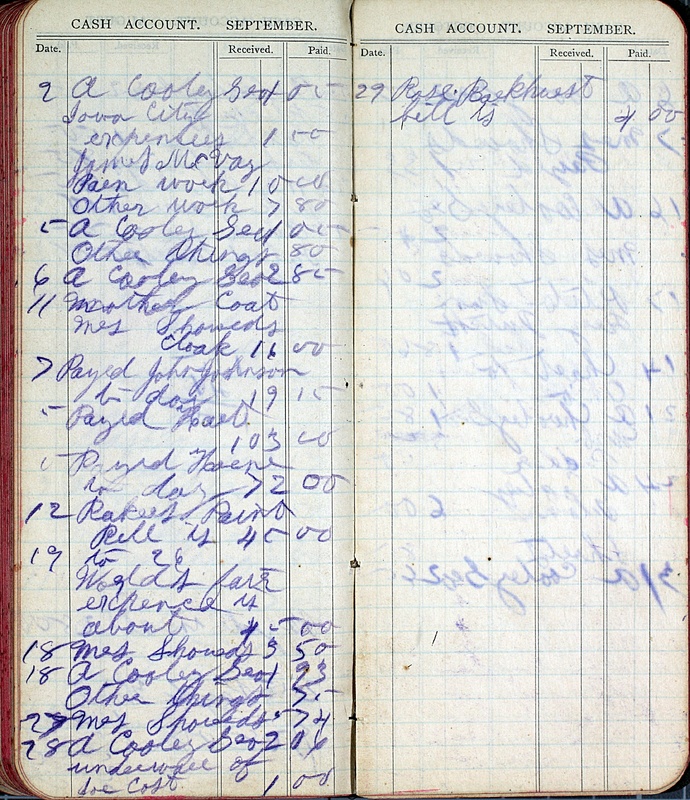 CASH ACCOUNT. SEPTEMBER.
Date. Received. Paid.
2 A Cooley Geo 1 05
Iowa City
expenses 1 50
James McVay
Paen work 10 00
Other work 7 80
5 A Cooley Geo 1 05
Other things 80
6 A Cooley Geo 2 85
11 Coat
Mes Showeds
Cloak 16 00
7 Payed John Johnson
to day 19 15
5 Payed
103 00
Payed
to day 72 00
12 Rakes Paint
Bill is 45 00
19 to 26
World's fair
expence is
about 45 00
18 Mes Showeds 3 50
18 A Cooley Geo 1 93
Other things 75
27 Mes Showeds 5 74
28 A Cooley Geo 2 06
underware of
Joe Cost 1 00
CASH ACCOUNT. SEPTEMBER.
Date. Received. Paid.
29 Rose Backhurst
bill is 4 00